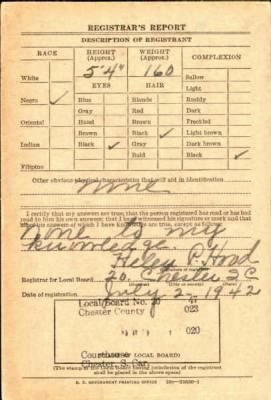 REGISTRAR'S REPORT
DESCRIPTION OF REGISTRANT
RACE HEIGHT (Approx.) WEIGHT (Approx.) COMPLEXION
White 5' 4" 160 Sallow
EYES HAIR Light
Negro ✓ Blue Blonde Ruddy
Gray Red Dark
Oriental Hazel Brown Freckled
Brown Black ✓ Light brown
Indian Black ✓ Gray Dark brown
Bald Black ✓
Filipino
Other obvious physical characteristics that will aid in identification
none
I certify that my answers are true; that the person registered has read or has had
read to him his own answers; that I have witnessed his signature or mark and that
all of his answers of which I have knowledge are true, except as follows:
None to my
knowledge.
Heley P. Hood
Registrar for Local Board 20 Chester S C
Date of registration July 2, 1942
Local Board No. 20
Chester County 023
020
Courthouse
Chester, S. Car.
(The stamp of the Local Board having jurisdiction of the registrant
shall be placed in the above space)
U. S. GOVERNMENT PRINTING OFFICE